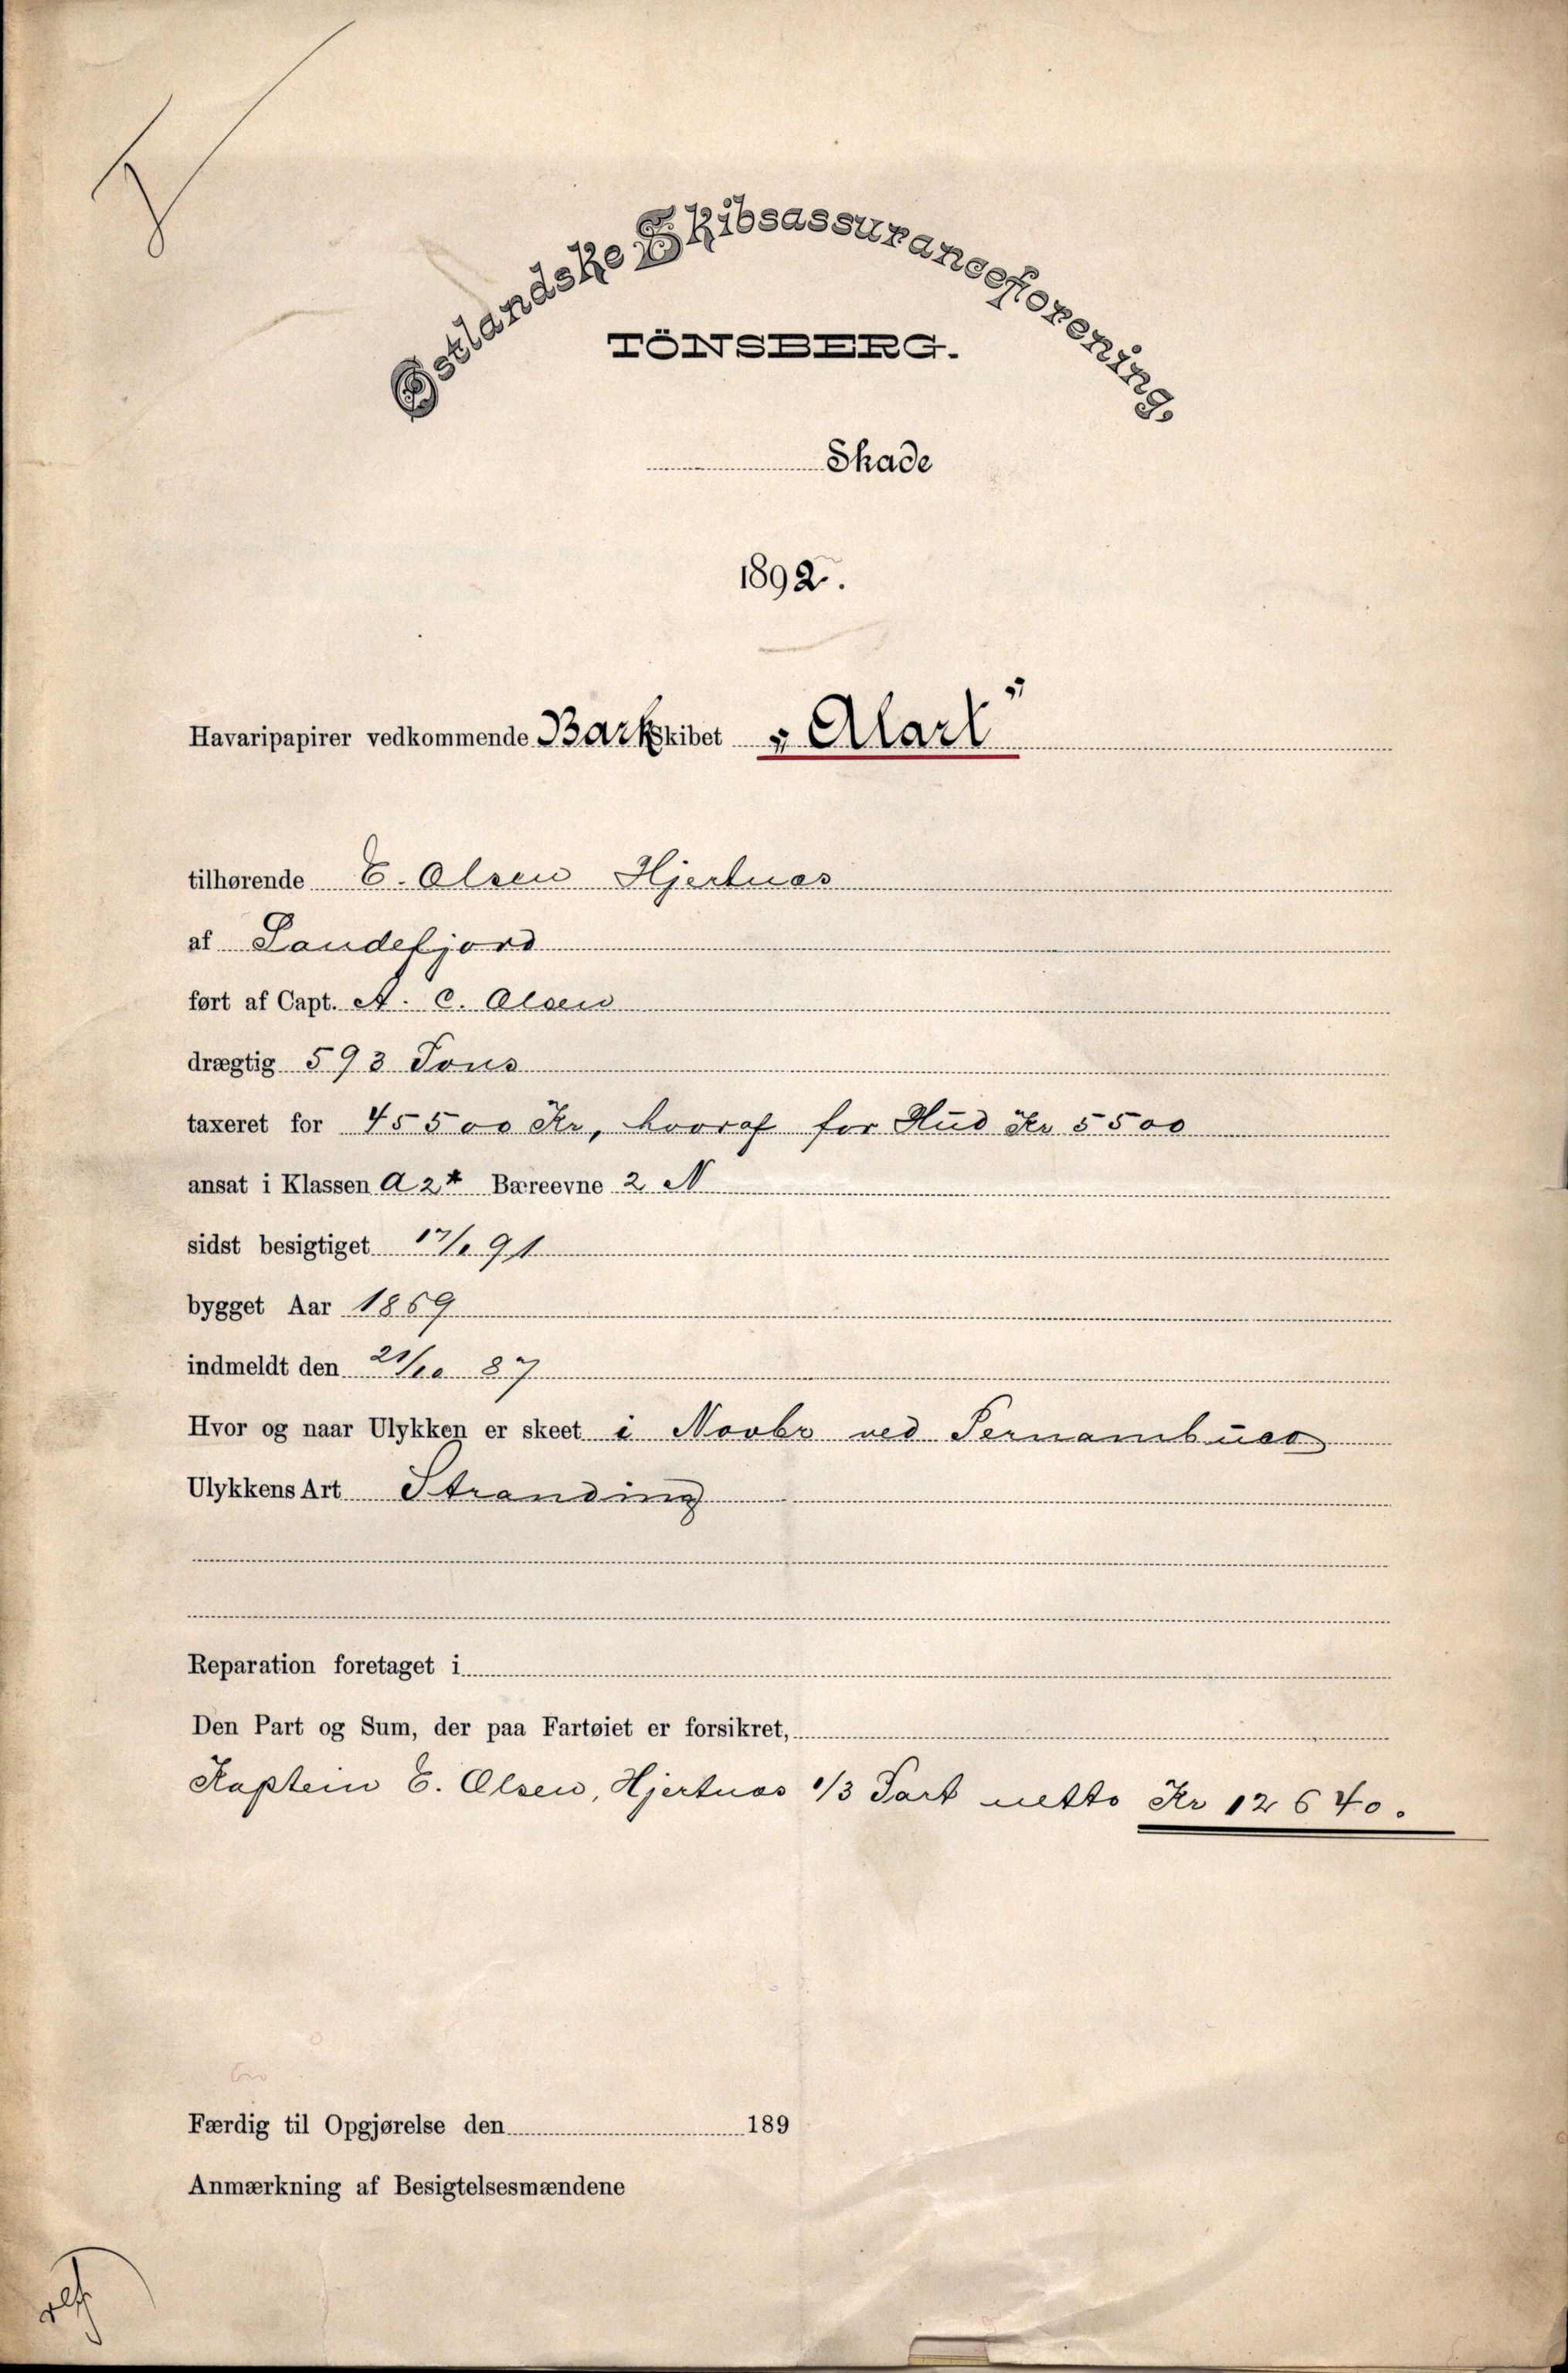 Østlandske Skibsassuranceforening.
TÖNSBERG.
Skade
1892.
Havaripapirer vedkommende Barkskibet „Alart"
tilhørende E. Olsen Hjertnæs
af Sandefjord
ført af Capt. A. C. Olsen
drægtig 593 Tons
taxeret for 45500 Kr, hvoraf for Hud Kr 5500
ansat i Klassen A2* Bæreevne 2 N
sidst besigtiget 91
bygget Aar 1869
indmeldt den 21/10 87
Hvor og naar Ulykken er skeet i Novbr ved Pernambuco
Ulykkens Art Stranding
Reparation foretaget i
Den Part og Sum, der paa Fartøiet er forsikret,
Kaptein E. Olsen, Hjertnæs 1/3 Part netto Kr 12640.
Færdig til Opgjørelse den 189
Anmærkning af Besigtelsesmændene